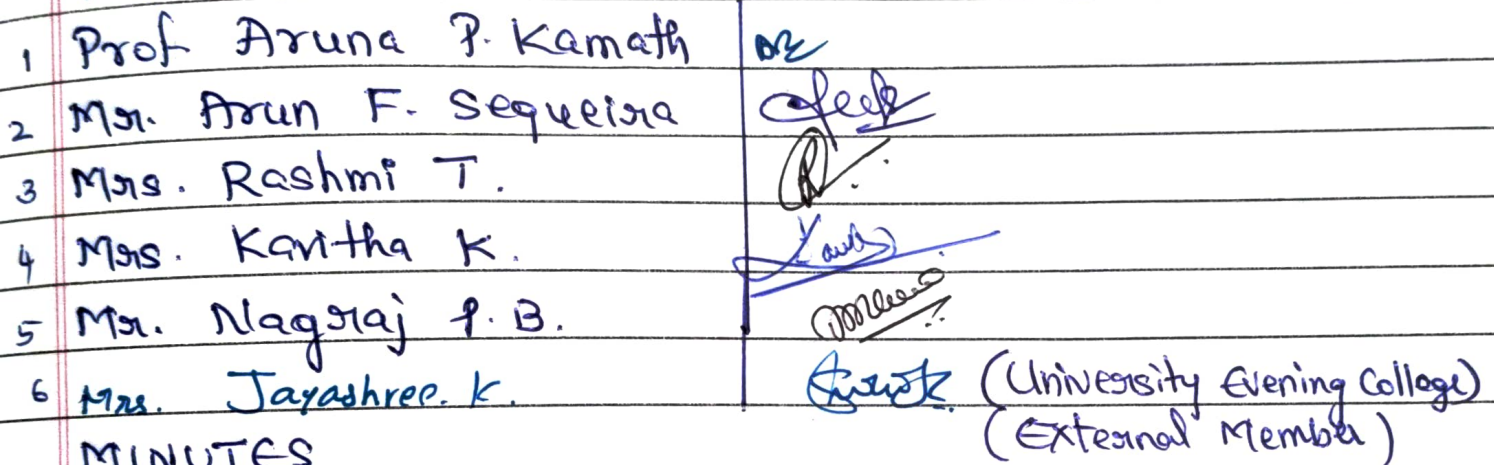 1 Prof Aruna P. Kamath
2 Mr. Arun F. Sequeira
3 Mrs. Rashmi T.
4 Mrs. Kavitha K.
5 Mr. Nagraj P. B.
6 Mrs. Jayashree. K. (University Evening College)
(External Member)
MINUTES